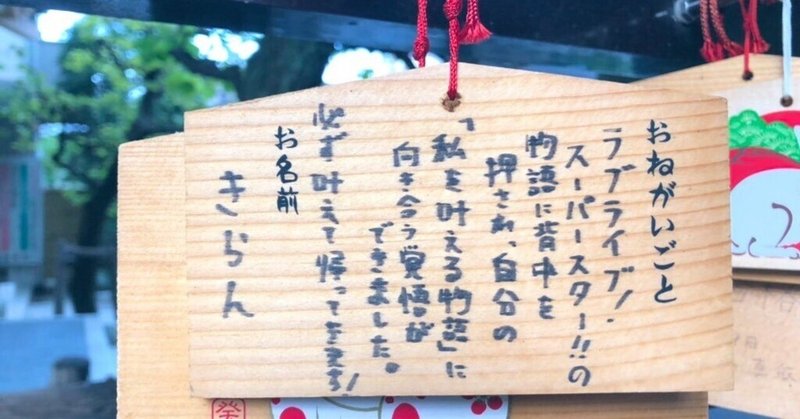 おねがいごと
ラブライブ!
スーパースター!!の
物語に背中を
押され、自分の
「私を叶える物語」に
向き合う覚悟が
できました。
必ず叶えて帰ってきます!
お名前
きらん